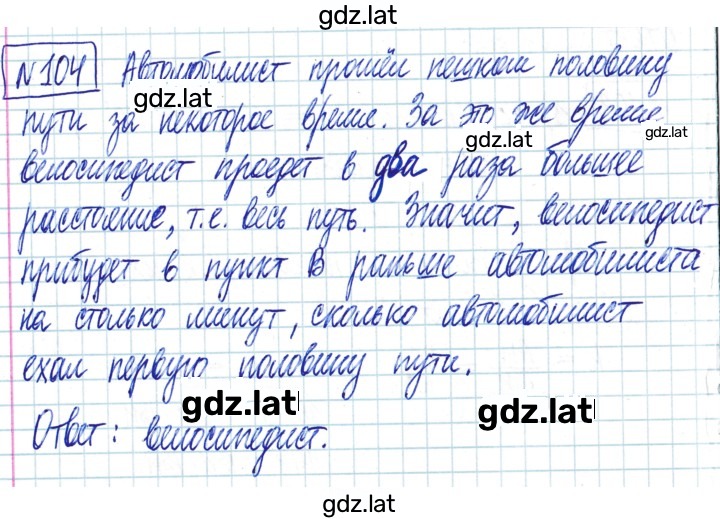 gdz.lat
№104 Автомобилист прошёл пешком половину
gdz.lat
пути за некоторое время. За это же время
gdz.lat gdz.lat
велосипедист проедет в два раза большее
расстояние, т.е. весь путь. Значит, велосипедист
прибудет в пункт В раньше автомобилиста
на столько минут, сколько автомобилист
ехал первую половину пути.
gdz.lat gdz.lat
Ответ: велосипедист.
gdz.lat